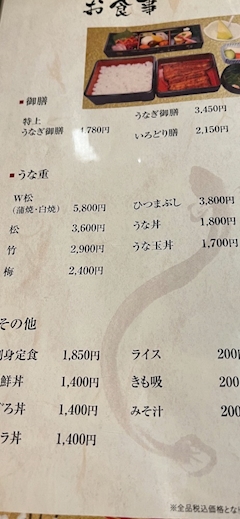 お食事
■ 御膳
特上
うなぎ御膳 4,780円
うなぎ御膳 3,450円
いろどり膳 2,150円
■ うな重
W松
(蒲焼・白焼) 5,800円
松 3,600円
竹 2,900円
梅 2,400円
ひつまぶし 3,800円
うな丼 1,800円
うな玉丼 1,700円
その他
刺身定食 1,850円
鮮丼 1,400円
ぐろ丼 1,400円
ラ丼 1,400円
ライス 200円
きも吸 200
みそ汁 200
※全品税込価格とな